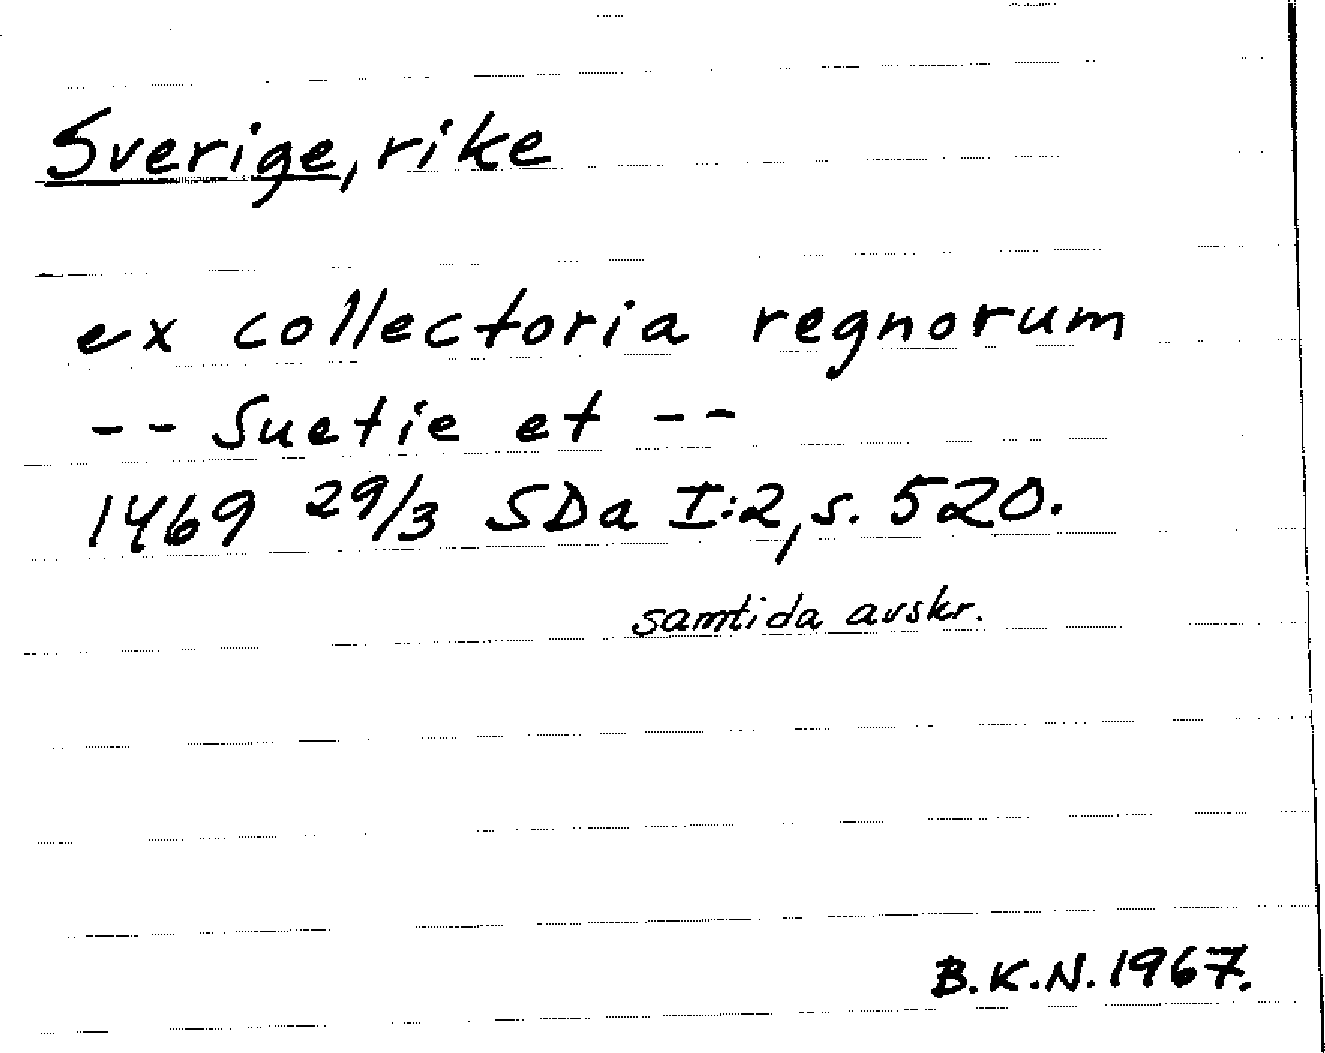 Sverige, rike
ex collectoria regnorum
-- Suetie et --
1469 29/3 SDa I:2, s. 520.
samtida avskr.
B.K.N. 1967.